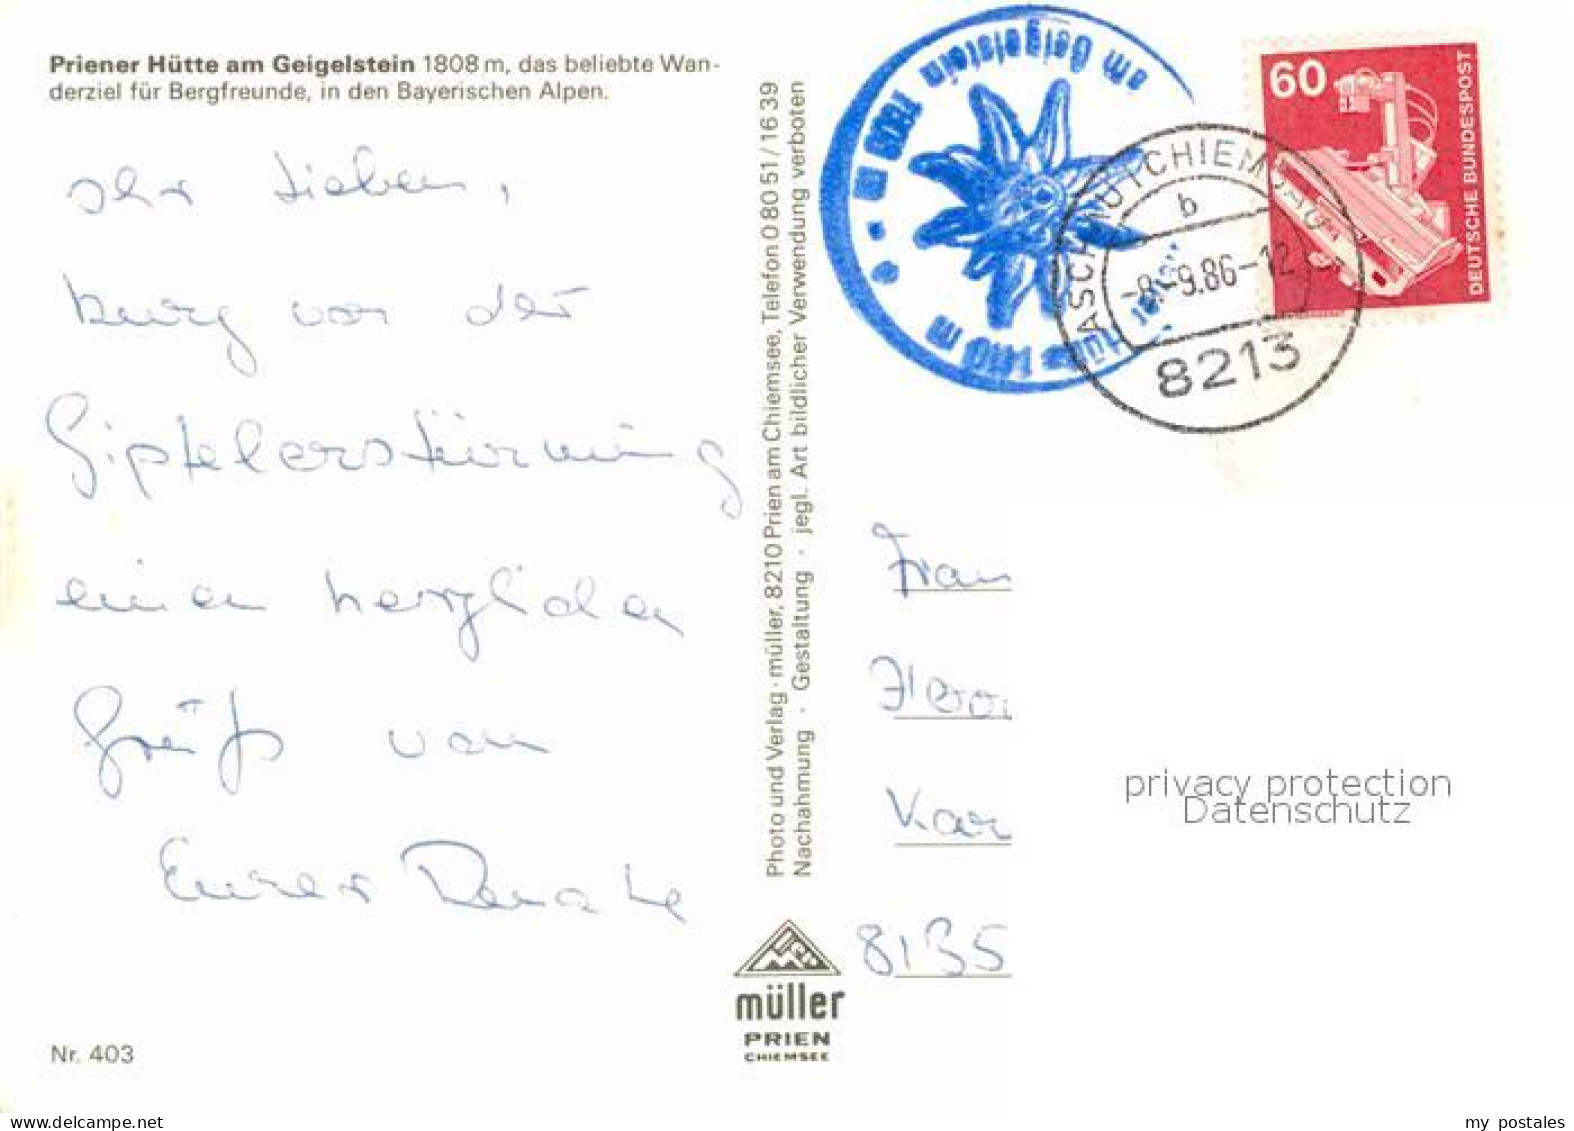 Priener Hütte am Geigelstein 1808 m, das beliebte Wan-
derziel für Bergfreunde, in den Bayerischen Alpen.
Ihr Lieben,
kurz vor der
Gipfelerstürmung
einen herzlichen
Gruß von
Eurer Renate
Nr. 403
Photo und Verlag · müller, 8210 Prien am Chiemsee, Telefon 0 80 51 / 16 39
Nachahmung · Gestaltung · jegl. Art bildlicher Verwendung verboten
müller
PRIEN
CHIEMSEE
am Geigelstein 1808 m
1410 m
ASCHAU I CHIEMGAU
b
-8.-9.86-12
8213
60
DEUTSCHE BUNDESPOST
Frau
Kar
8135
privacy protection
Datenschutz
my postales